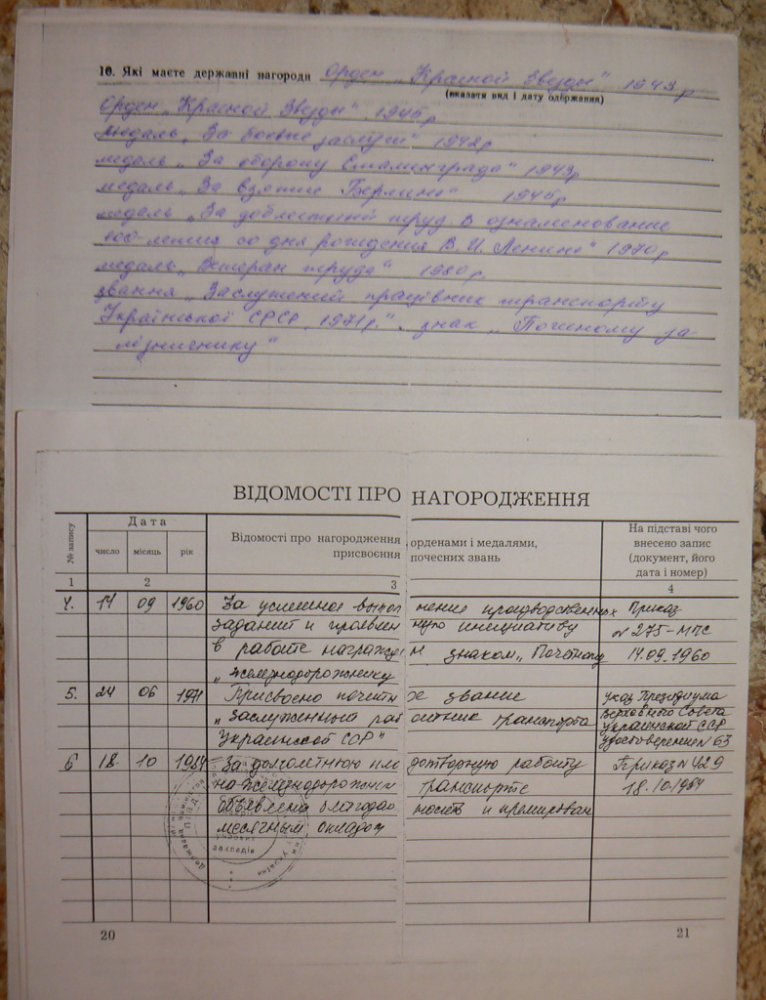 10. Які маєте державні нагороди Орден „Красной Звезды" 1943 р
(вказати вид і дату одержання)
Орден „Красной Звезды" 1945 р
медаль „За боевые заслуги" 1942 р
медаль „За оборону Сталинграда" 1943 р
медаль „За взятие Берлина" 1945 р
медаль „За доблестный труд. В ознаменование
100-летия со дня рождения В. И. Ленина" 1970 р
медаль „Ветеран труда" 1980 р
звання „Заслужений працівник транспорту
Української СРСР 1971 р.". знак „Почесному за
лізничнику"
ВІДОМОСТІ ПРО НАГОРОДЖЕННЯ
№ запису
Дата
число місяць рік
Відомості про нагородження орденами і медалями,
присвоєння почесних звань
На підставі чого
внесено запис
(документ, його
дата і номер)
1 2 3 4
4. 09 1960 За успешное выпол нение производственных Приказ
заданий и проявлен ную инициативу № 275-МПС
в работе награжден знаком „Почетному 14.09.1960
железнодорожнику
5. 24 06 1971 Присвоено почетн ое звание указ Президиума
„Заслуженный раб отник транспорта Верховного Совета
Украинской ССР" Украинской ССР
удостоверение № 63
6 18 10 За долголетнюю пло дотворную работу Приказ № 429
на железнодорожном транспорте 18.10.
объявлена благодар ность и премирован
месячным окладом
закладів
України
20
21